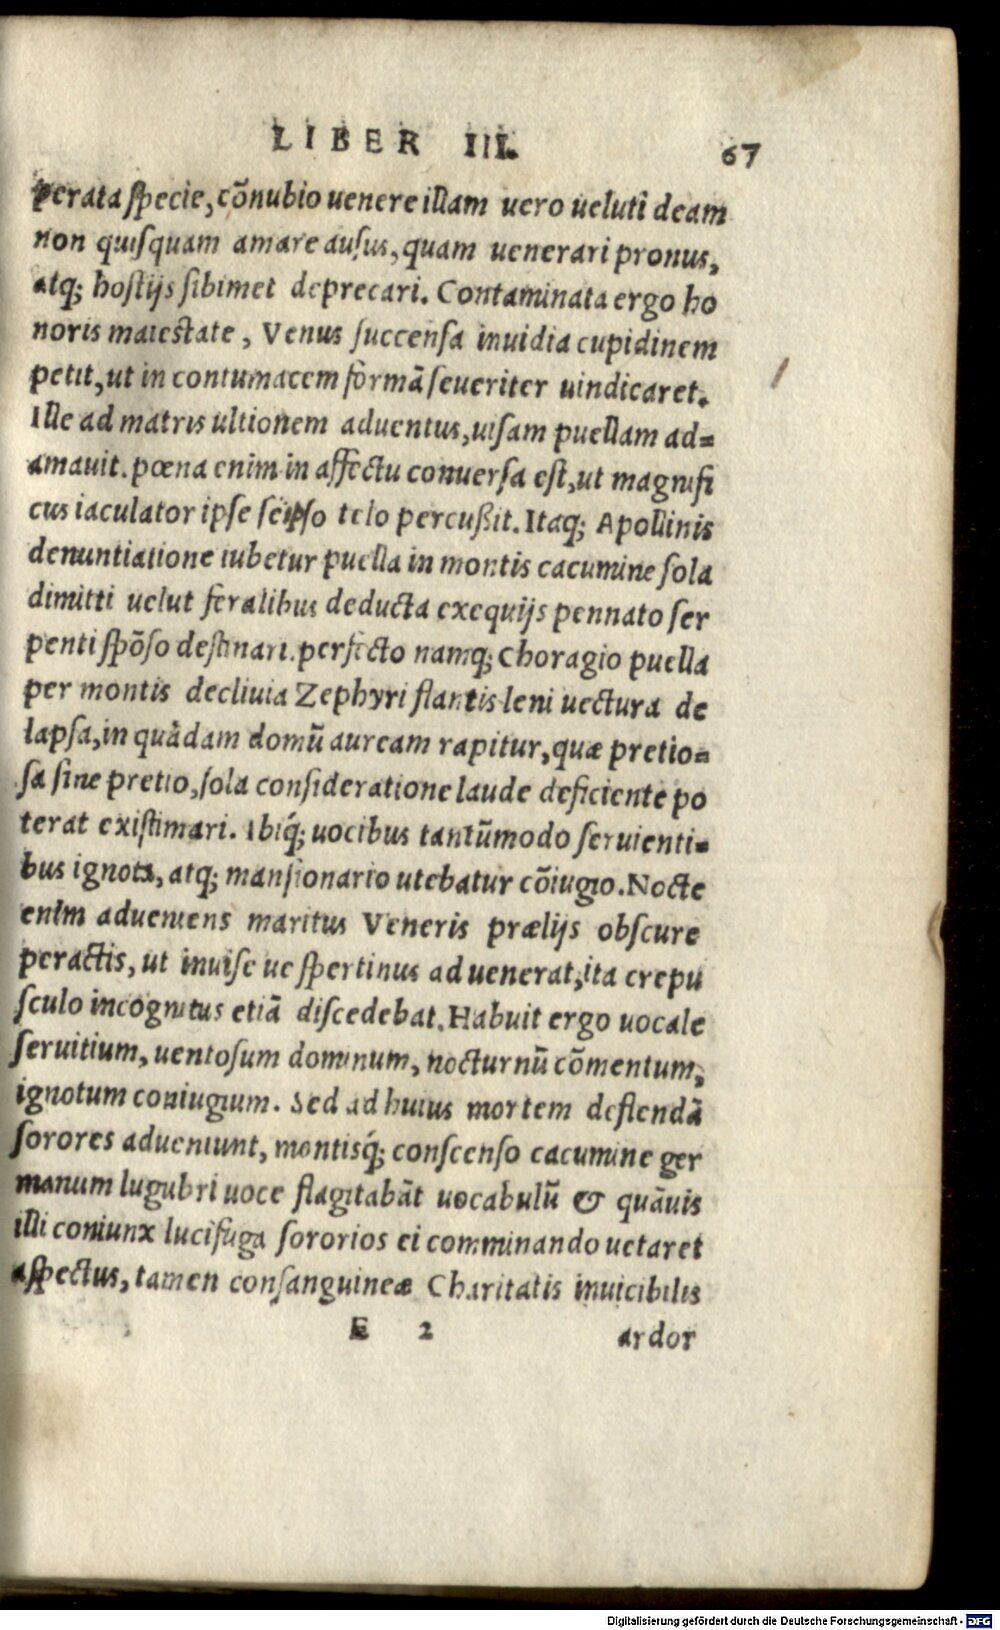 LIBER III. 67
perata specie, cõnubio uenere illam uero ueluti deam
non quisquam amare ausus, quam uenerari pronus,
atq; hostijs sibimet deprecari. Contaminata ergo ho
noris maiestate, Venus succensa inuidia cupidinem
petit, ut in contumacem formã seueriter uindicaret.
Ille ad matris ultionem aduentus, uisam puellam ad=
amauit. pœna enim in affectu conuersa est, ut magnifi
cus iaculator ipse seipso telo percußit. Itaq; Apollinis
denuntiatione iubetur puella in montis cacumine sola
dimitti uelut feralibus deducta exequijs pennato ser
penti spõso destinari. perfecto namq; Choragio puella
per montis decliuia Zephyri flantis leni uectura de
lapsa, in quãdam domũ auream rapitur, quæ pretio=
sa sine pretio, sola consideratione laude deficiente po
terat existimari. Ibiq́; uocibus tantũmodo seruienti=
bus ignota, atq; mansionario utebatur cõiugio. Nocte
enim adueniens maritus Veneris prælijs obscure
peractis, ut inuise uespertinus aduenerat, ita crepu
sculo incognitus etiã discedebat. Habuit ergo uocale
seruitium, uentosum dominum, nocturnũ cõmentum,
ignotum coniugium. Sed ad huius mortem deflendã
sorores adueniunt, montisq́; conscenso cacumine ger
manum lugubri uoce flagitabãt uocabulũ & quãuis
illi coniunx lucifuga sororios ei comminando uetaret
aspectus, tamen consanguineæ Charitatis inuicibilis
E 2 ardor
Digitalisierung gefördert durch die Deutsche Forschungsgemeinschaft - DFG